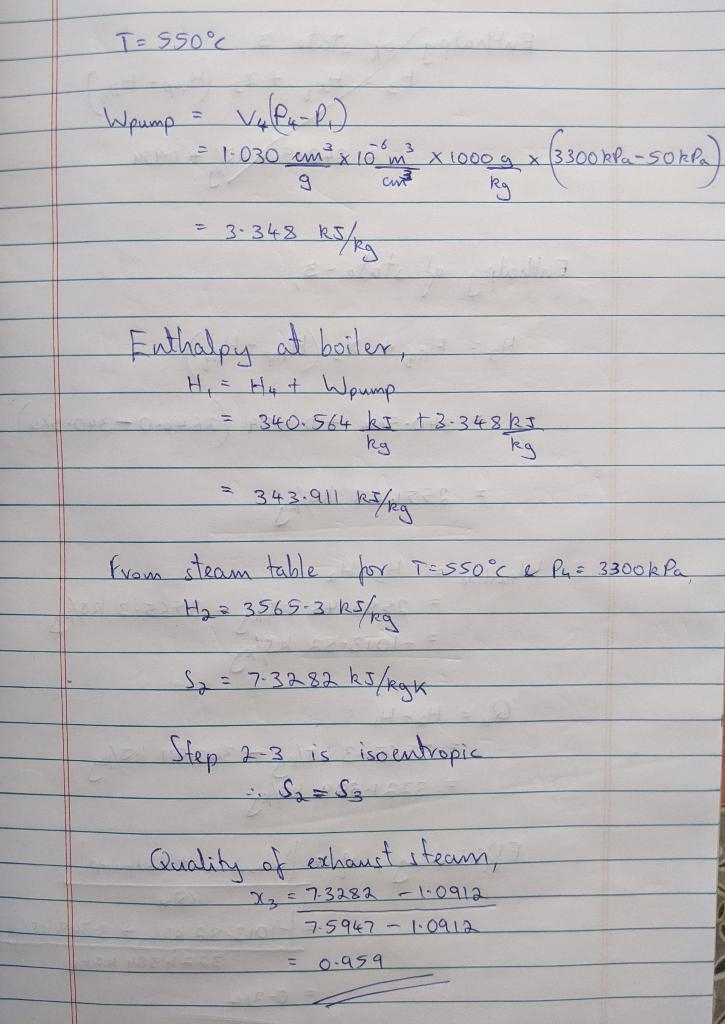 T = 550°C
Wpump = V₄(P₄-P₁)
= 1.030 cm³/g × 10⁻⁶ m³/cm³ × 1000 g/kg × (3300kPa-50kPa)
= 3.348 kJ/kg
Enthalpy at boiler,
H₁ = H₄ + Wpump
= 340.564 kJ/kg + 3.348 kJ/kg
= 343.911 kJ/kg
From steam table for T=550°C & P₄ = 3300kPa,
H₂ = 3565.3 kJ/kg
S₂ = 7.3282 kJ/kgK
Step 2-3 is isoentropic
∴ S₂ = S₃
Quality of exhaust steam,
x₃ = 7.3282 - 1.0912
7.5947 - 1.0912
= 0.959